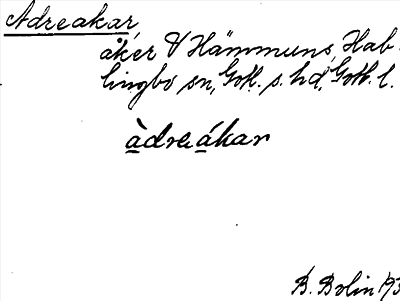 Adreakar
åker V Hämmuns, Hab-
lingbo sn, Gotl. s. hd, Gotl. l.
àdreákar
B. Bolin 193